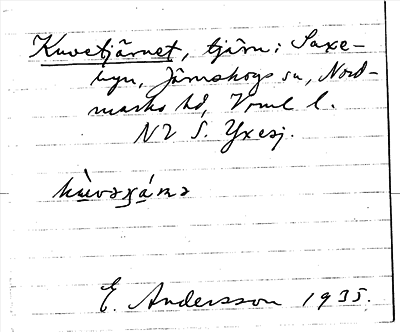 Kuvetjärnet, tjärn i Saxe-
byn, Järnskogs sn, Nord-
marks hd, Vrml l.
NV S. Yxesj.
kùvəʒá̱mə
E. Andersson 1935.